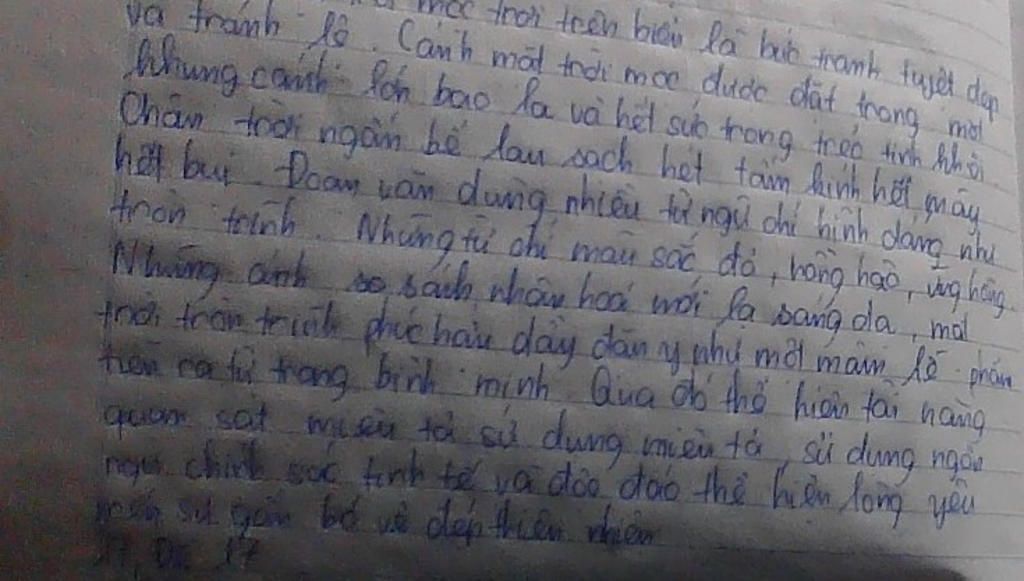 mọc trời trên biển là bức tranh tuyệt đẹp
và tránh lệ. Cảnh mặt trời mọc được đặt trong một
khung cảnh lớn bao la và hết sức trong trẻo tinh khôi.
Chân trời ngấn bể lau sạch hết tấm kính hết mây
hết bụi. Đoạn văn dùng nhiều từ ngữ chỉ hình dáng như
tròn trĩnh. Những từ chỉ màu sắc đỏ, hồng hào, ửng hồng
Những ảnh so sánh nhân hoá mới lạ sáng da, mặt
trời tròn trĩnh phúc hậu đầy đặn y như một mâm lễ phẩm
tiến ra từ trong bình minh. Qua đó thể hiện tài năng
quan sát miêu tả sử dụng miêu tả, sử dụng ngôn
ngữ chính sác tinh tế và độc đáo thể hiện lòng yêu
mến sự gắn bó vẻ đẹp thiên nhiên